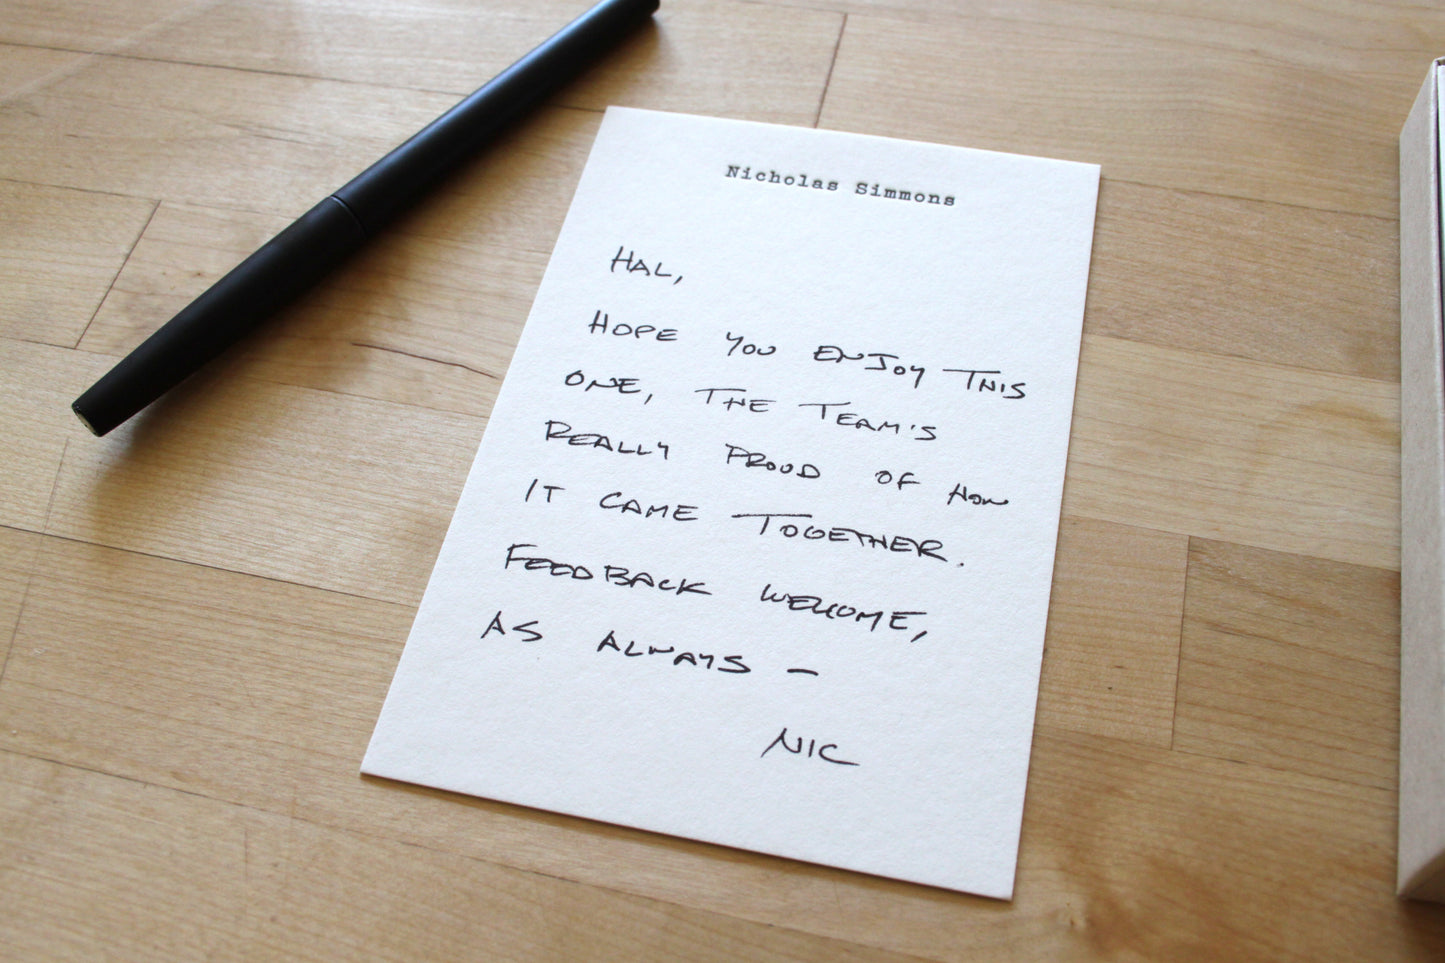 Nicholas Simmons
HAL,
HOPE YOU ENJOY THIS
ONE, THE TEAM'S
REALLY PROUD OF HOW
IT CAME TOGETHER.
FEEDBACK WELCOME,
AS ALWAYS —
NIC